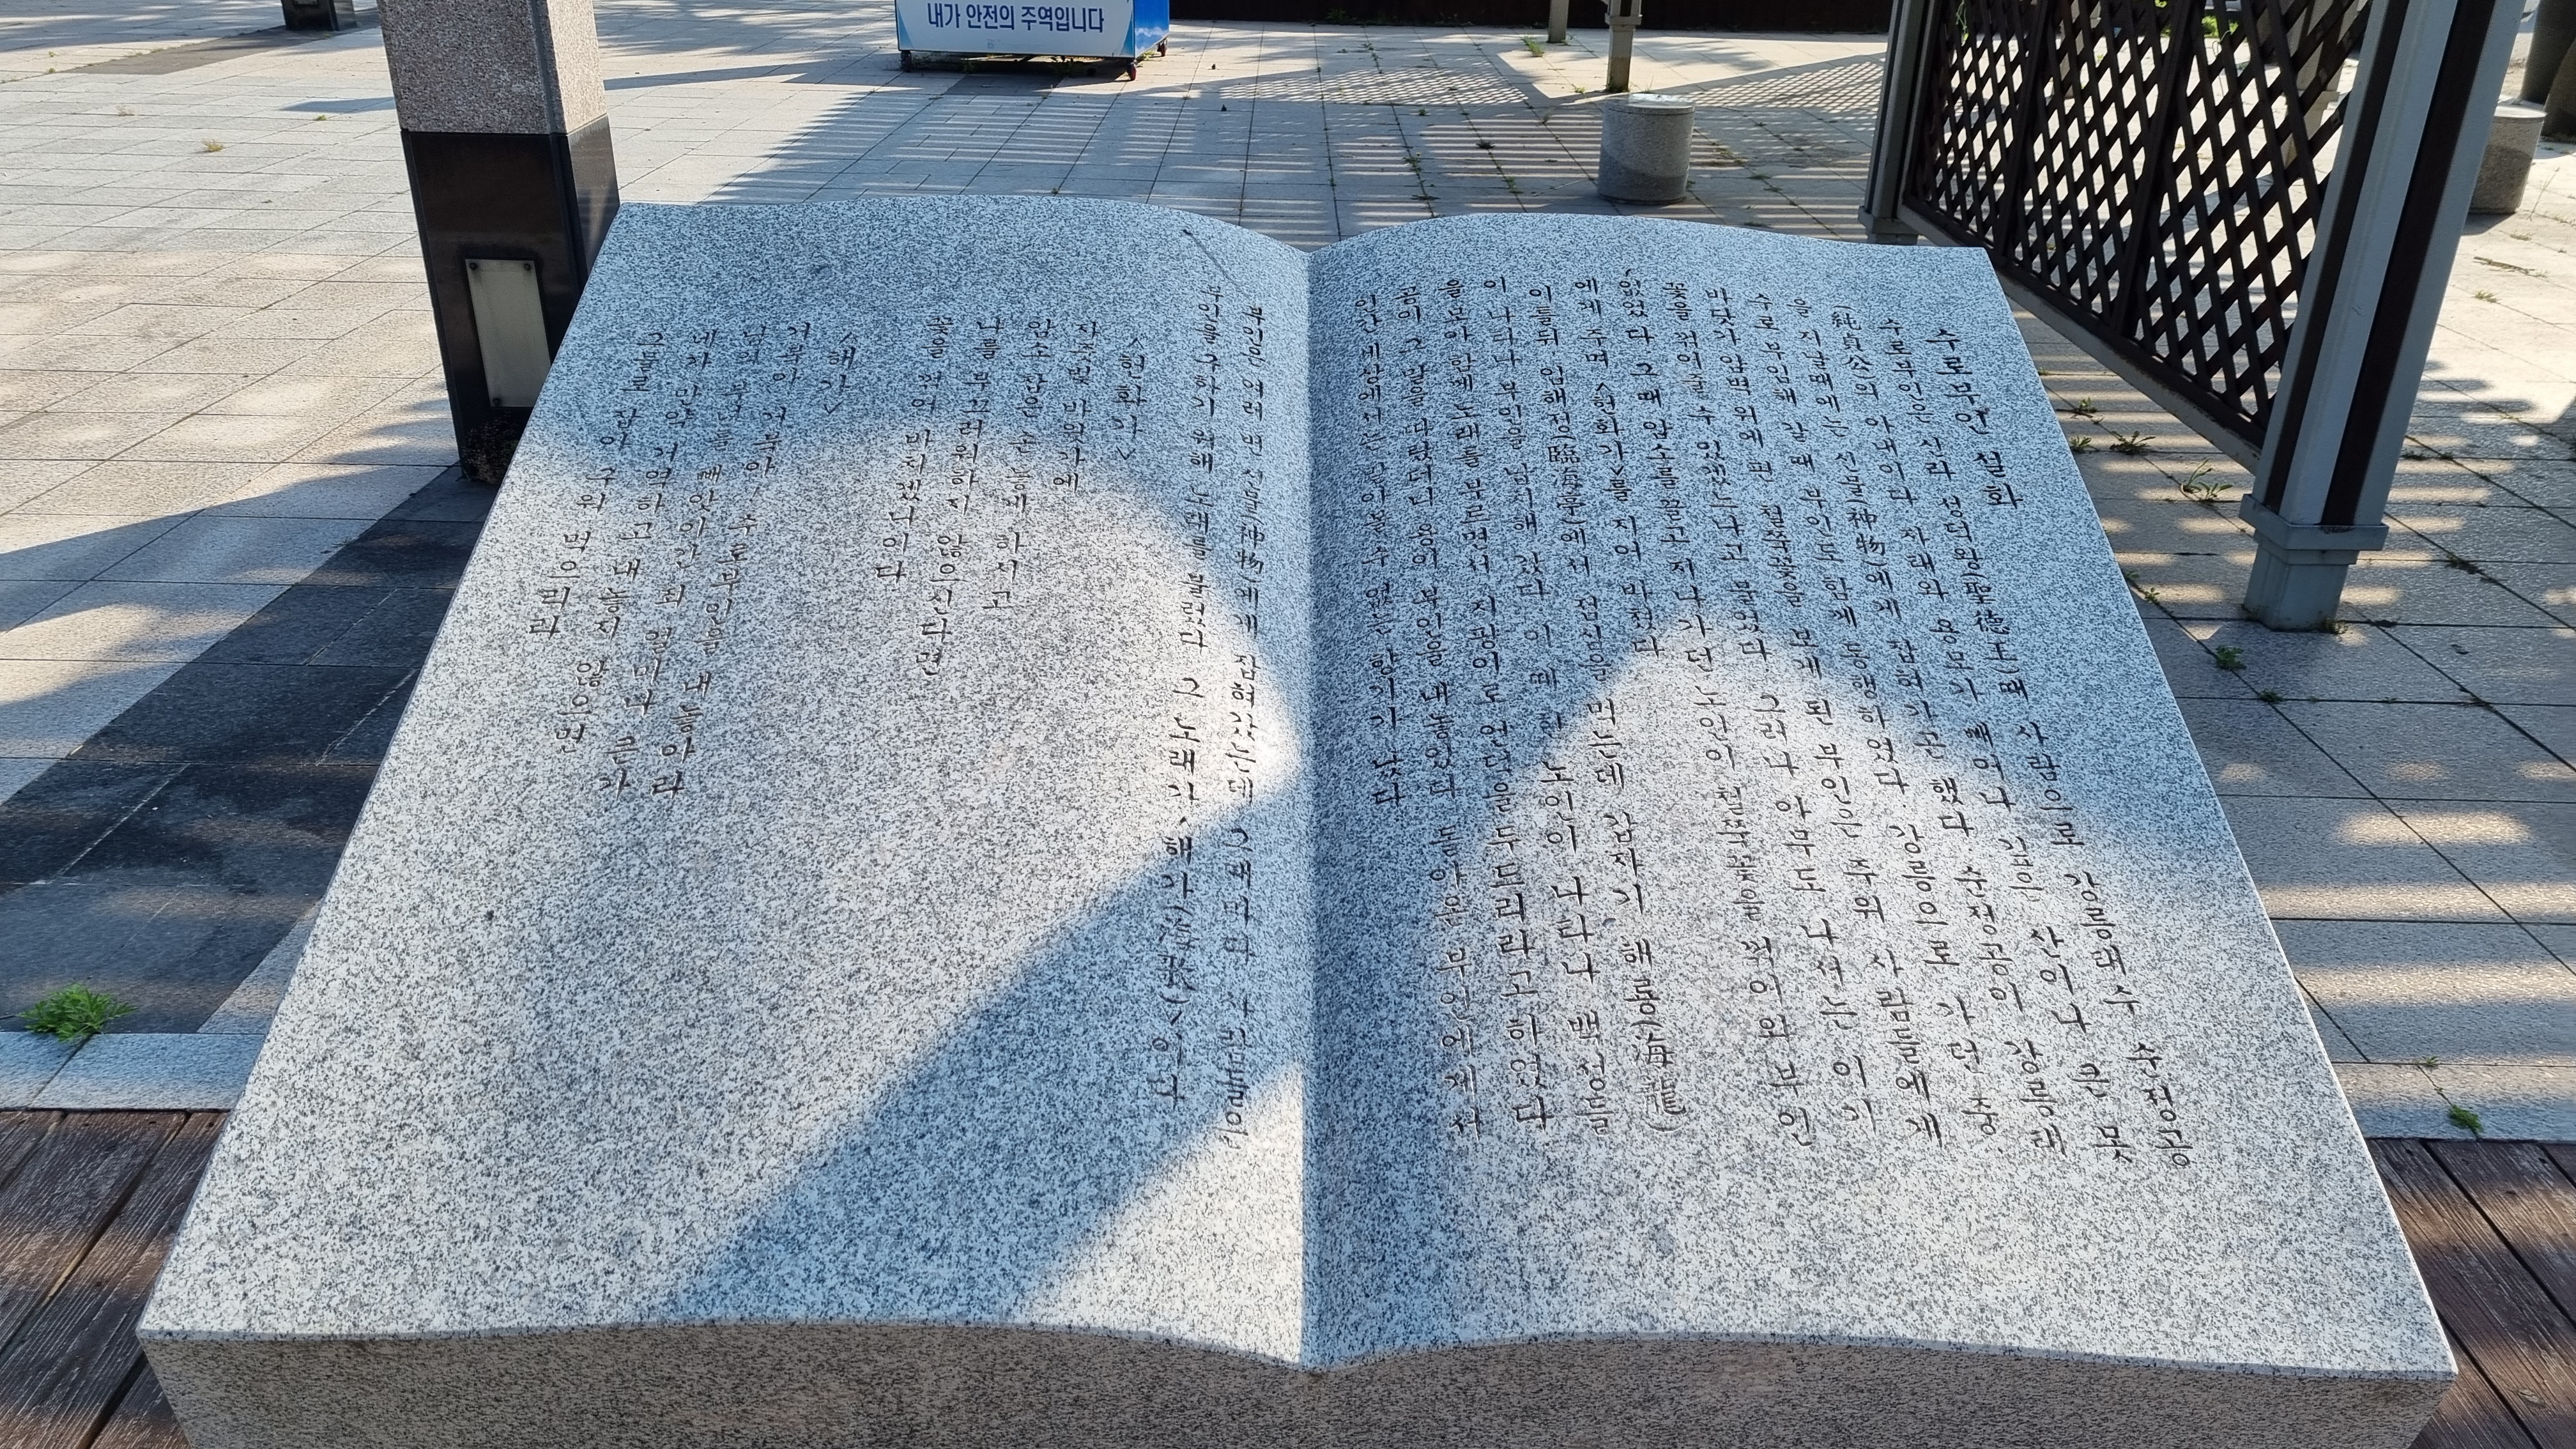 내가 안전의 주역입니다
수로부인 설화
수로부인은 신라 성덕왕(聖德王)때 사람으로 강릉태수 순정공
(純貞公)의 아내이다 자태와 용모가 빼어나 깊은 산이나 큰 못
을 지날때에는 신물(神物)에게 잡혀가곤 했다 순정공이 강릉태
수로 부임해 갈 때 부인도 함께 동행하였다 강릉으로 가던 중
바닷가 암벽 위에 핀 철쭉꽃을 보게 된 부인은 주위 사람들에게
꽃을 꺾어올 수 있겠느냐고 물었다 그러나 아무도 나서는 이가
없었다 그 때 암소를 끌고 지나가던 노인이 철쭉꽃을 꺾어와 부인
에게 주며 <헌화가>를 지어 바쳤다
이틀뒤 임해정(臨海亭)에서 점심을 먹는데 갑자기 해룡(海龍)
이 나타나 부인을 납치해 갔다 이 때 한 노인이 나타나 백성들
을 모아 함께 노래를 부르면서 지팡이로 언덕을 두드리라고 하였다
공이 그 말을 따랐더니 용이 부인을 내놓았다 돌아온 부인에게서
인간세상에서는 맡아볼 수 없는 향기가 났다
부인은 여러 번 신물(神物)에게 잡혀갔는데 그때마다 사람들은
부인을 구하기 위해 노래를 불렀다 그 노래가 <해가(海歌)>이다
<헌화가>
자줏빛 바윗가에
암소 잡은 손 놓게 하시고
나를 부끄러워하지 않으신다면
꽃을 꺾어 바치겠나이다
<해가>
거북아 거북아 수로부인을 내놓아라
남의 부녀를 빼앗아간 죄 얼마나 큰가
네가 만약 거역하고 내놓지 않으면
그물로 잡아 구워 먹으리라